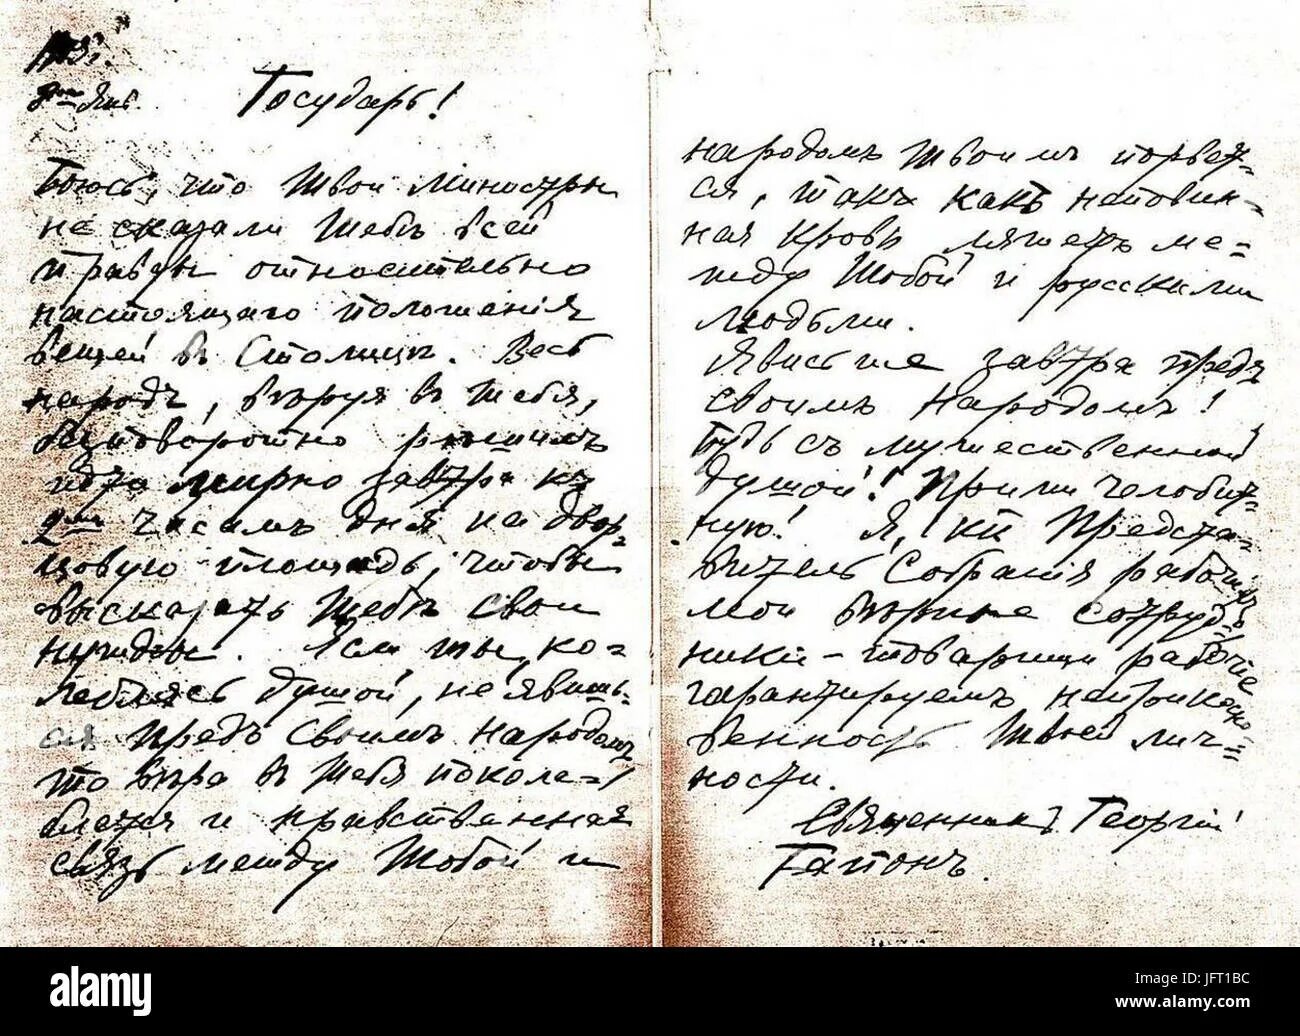 1905 г.
8го Янв.
Государь!
Боюсь, что Твои Министры
не сказали Тебѣ всей
правды относительно
настоящаго положенія
вещей в Столицѣ. Весь
народъ, вѣруя в Тебя,
безповоротно рѣшилъ
идти мирно завтра къ
2мъ часамъ дня на двор-
цовую площадь, чтобы
высказать Тебѣ свои
нужды. Если ты, ко-
леблясь душой, не явишь-
ся предъ своимъ народомъ,
то вѣра в Тебя поколе-
блется и нравственная
связь между Тобой и
народомъ Твоимъ порвет-
ся, такъ какъ неповин-
ная кровь ляжетъ ме-
жду Тобой и русскими
людьми.
Явись же завтра предъ
своимъ Народомъ!
Будь съ мужественной
душой! Прими челобит-
ную! Я, Предста-
витель Собранія рабочихъ
мои вѣрные сотруд-
ники-товарищи рабочіе
гарантируемъ неприкосно-
венность Твоей лич-
ности.
Священникъ Георгій
Гапонъ.
alamy
alamy
Image ID: JFT1BC
www.alamy.com